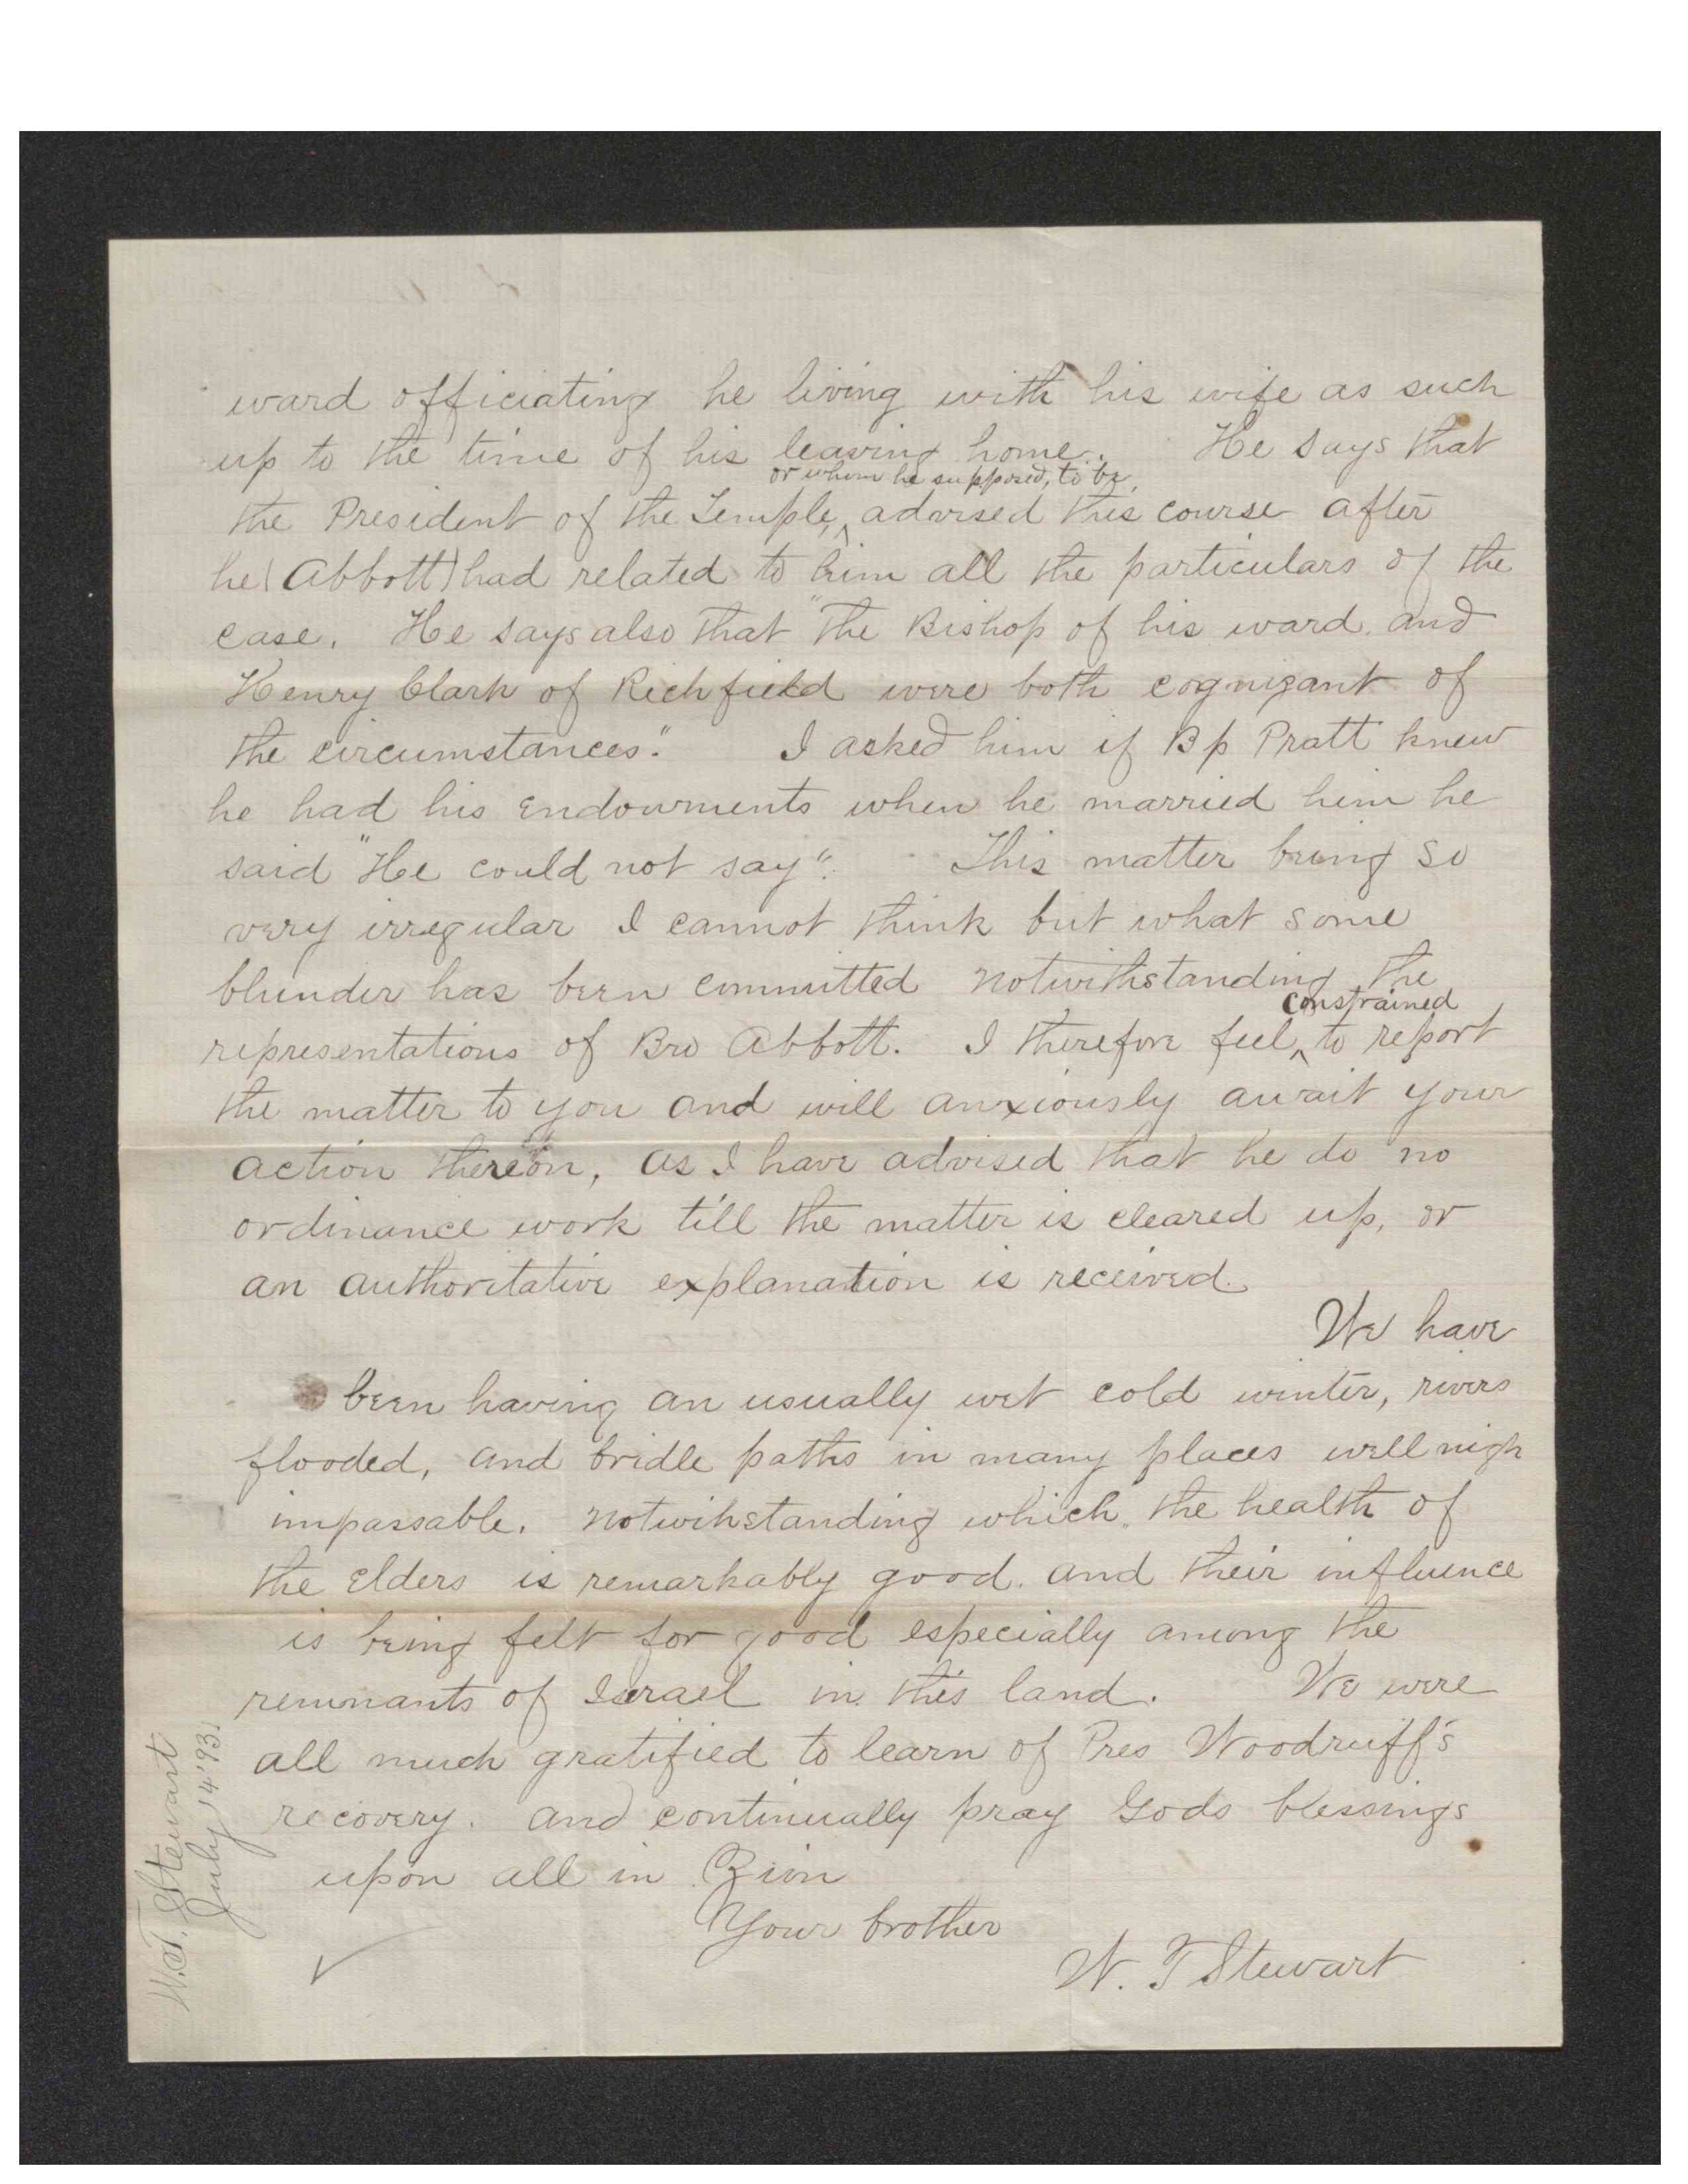 ward officiating he living with his wife as such
up to the time of his leaving home. He says that
or whom he supposed, to be,
the President of the Temple, ^ advised this course after
he (Abbott) had related to him all the particulars of the
case. He says also that "the Bishop of his ward and
Henry Clark of Richfield were both cognizant of
the circumstances." I asked him if Bp Pratt knew
he had his endowments when he married him he
said "He could not say". This matter being so
very irregular I cannot think but what some
blunder has been committed notwithstanding the
constrained
representations of Bro Abbott. I therefore feel ^ to report
the matter to you and will anxiously await your
action thereon, as I have advised that he do no
ordinance work till the matter is cleared up, or
an authoritative explanation is received.
We have
been having an usually wet cold winter, rivers
flooded, and bridle paths in many places well nigh
impassable. notwihstanding which, the health of
the elders is remarkably good. and their influence
is being felt for good especially among the
remnants of Israel in this land. We were
all much gratified to learn of Pres Woodruff's
recovery. and continually pray Gods blessings
upon all in Zion
Your brother
W. T Stewart
W.T. Stewart
July 14 '93.